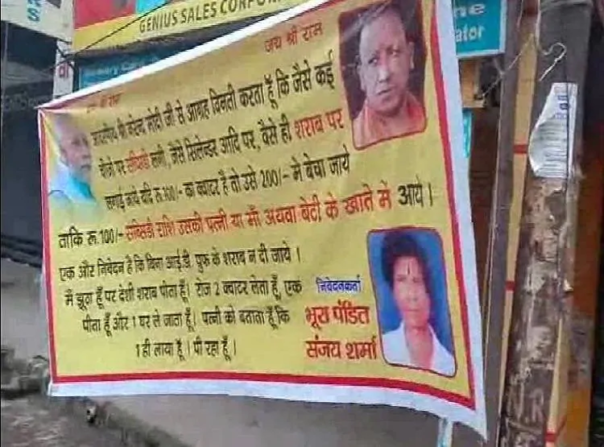 GENIUS SALES CORPOR
ne
ator
जय श्री राम
जय श्री राम
आदरणीय श्री नरेन्द्र मोदी जी से आग्रह विनती करता हूँ कि जैसे कई
चीजो पर सब्सिडी लगी, जैसे सिलेन्डर आदि पर, वैसे ही शराब पर
लगाई जाये यदि रू.100/- का क्वाटर है तो उसे 200/- मे बेचा जाये
ताकि रू.100/- सब्सिडी राशि उसकी पत्नी या माँ अथवा बेटी के खाते में आये।
एक और निवेदन है कि बिना आई.डी. प्रुफ के शराब न दी जाये ।
मैं झूठा हूँ पर देशी शराब पीता हूँ। रोज 2 क्वाटर लेता हूँ, एक
पीता हूँ और 1 घर ले जाता हूँ। पत्नी को बताता हूँ कि
1 ही लाया हूँ । पी रहा हूँ ।
निवेदनकर्ता
भूरा पंडित
संजय शर्मा